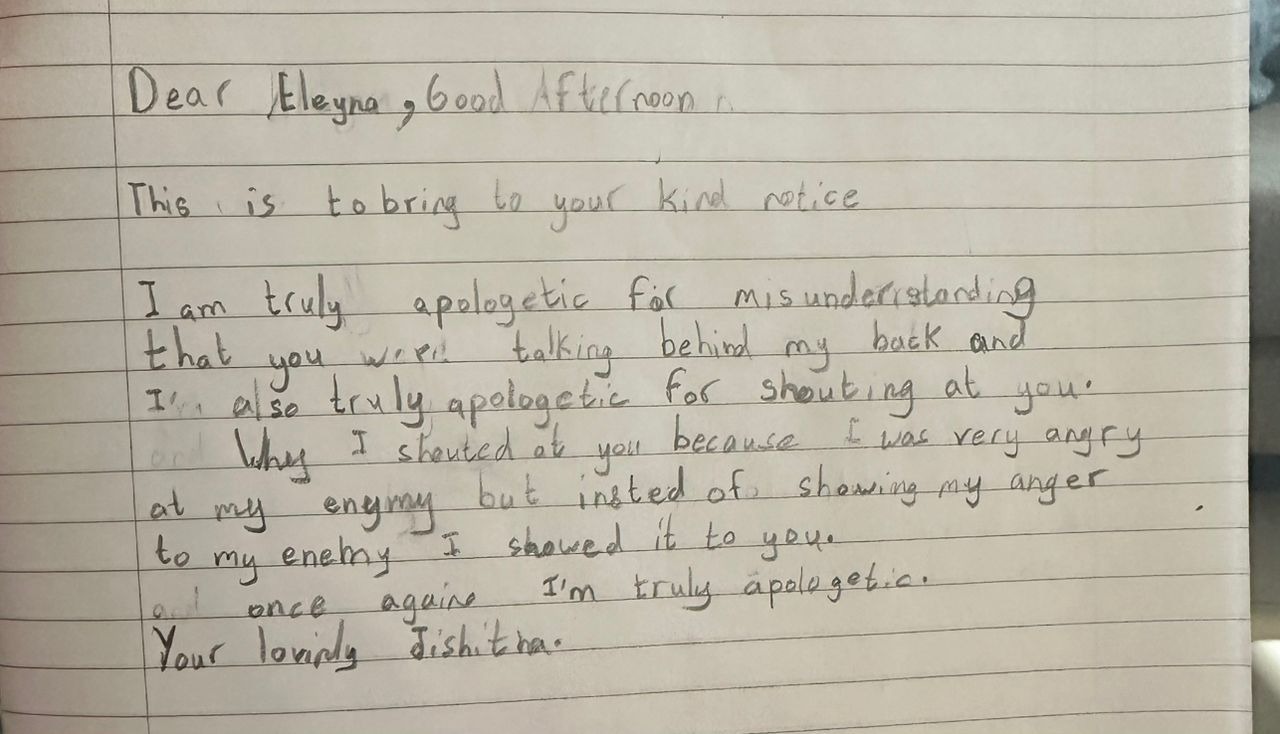 Dear Eleyna, Good Afternoon
This is to bring to your kind notice
I am truly apologetic for misunderrstanding
that you were talking behind my back and
I'm also truly apologetic for shouting at you.
Why I shouted at you because I was very angry
at my enymy but insted of showing my anger
to my enemy I showed it to you.
and once againe I'm truly apologetic.
Your lovinly Jishitha.